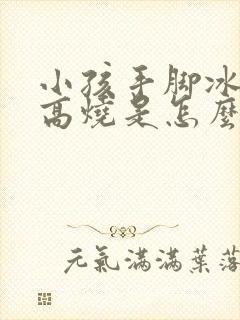 小孩手脚冰
高燒是怎麼
元氣滿滿葉落